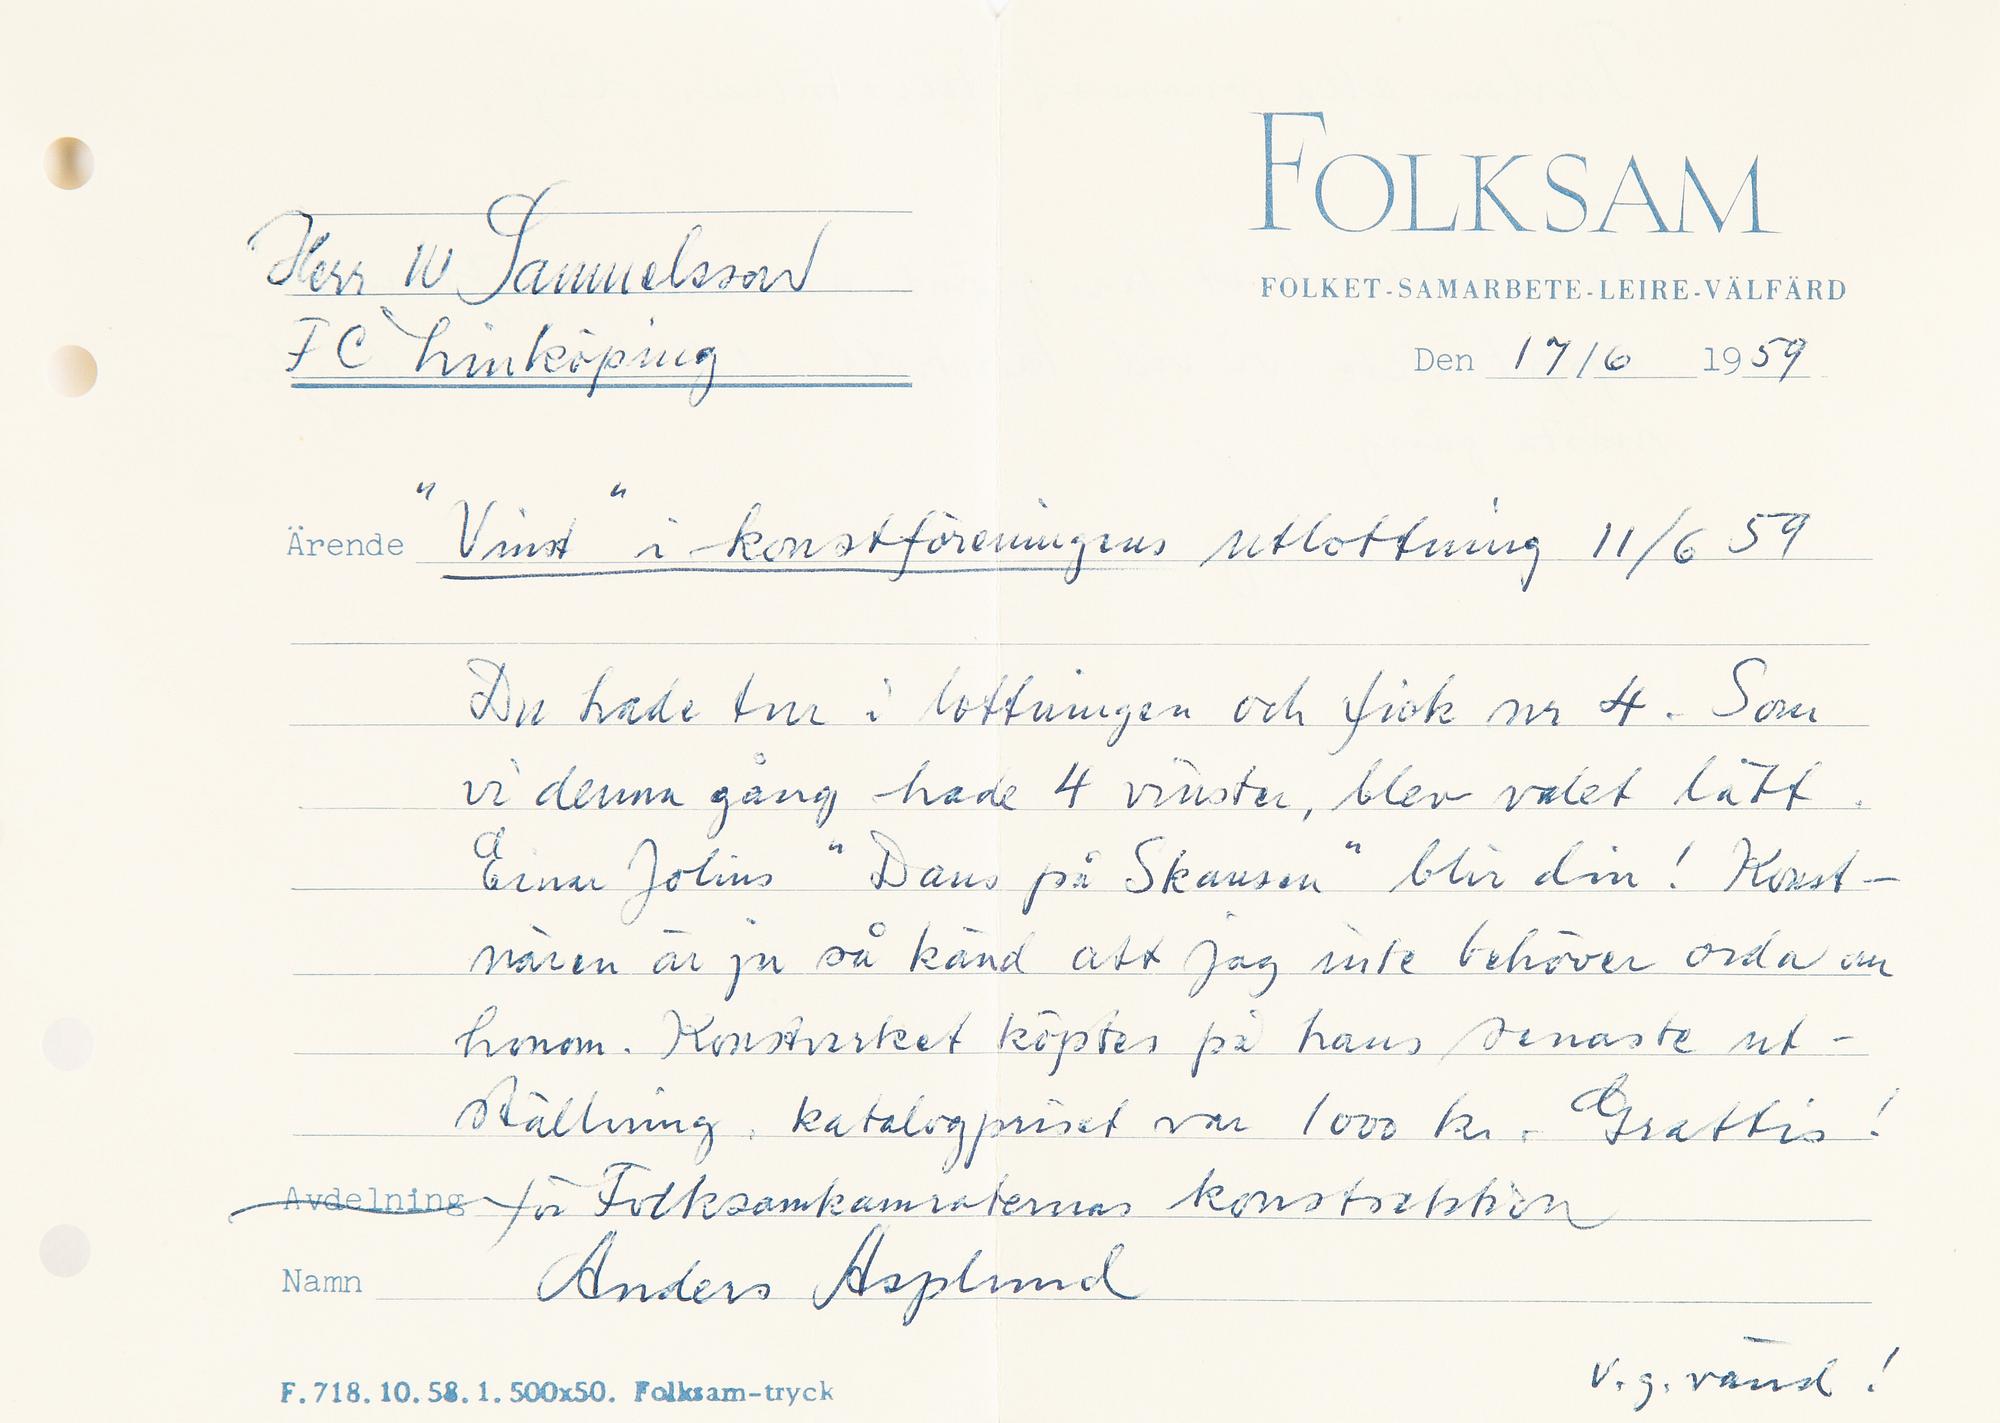 FOLKSAM
FOLKET-SAMARBETE-LEIRE-VÄLFÄRD
Herr W Samuelsson
FC Linköping
Den 17/6 1959
Ärende "Vinst" i konstföreningens utlottning 11/6 59
Du hade tur i lottningen och fick nr 4. Som
vi denna gång hade 4 vinster, blev valet lätt.
Einar Jolins "Dans på Skansen" blir din! Konst-
nären är ju så känd att jag inte behöver orda om
honom. Konstverket köptes på hans senaste ut-
ställning. katalogpriset var 1000 kr. Grattis!
Avdelning för Folksamkamraternas konstsektion
Namn Anders Asplund
v.g. vänd!
F.718.10.58.1.500x50. Folksam-tryck